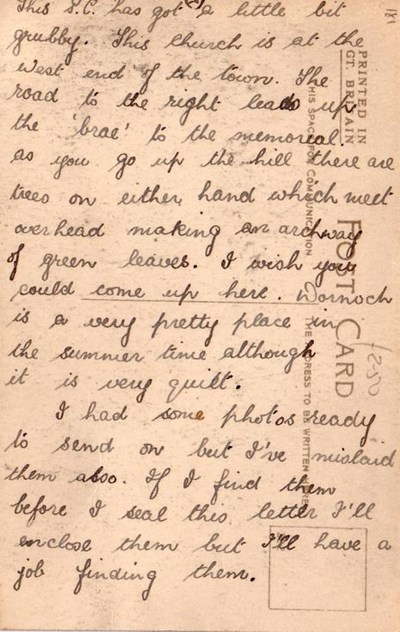 This P.C. has got a little bit
grubby. This church is at the
west end of the town. The
road to the right leads up
the 'brae' to the memorial.
as you go up the hill there are
trees on either hand which meet
overhead making an archway
of green leaves. I wish you
could come up here. Dornoch
is a very pretty place in
the summer time although
it is very quiet.
I had some photos ready
to send on but I've mislaid
them also. If I find them
before I seal this letter I'll
enclose them but I'll have a
job finding them.
PRINTED IN
GT. BRITAIN
THIS SPACE FOR COMMUNICATION
POST CARD
THE ADDRESS TO BE WRITTEN HERE